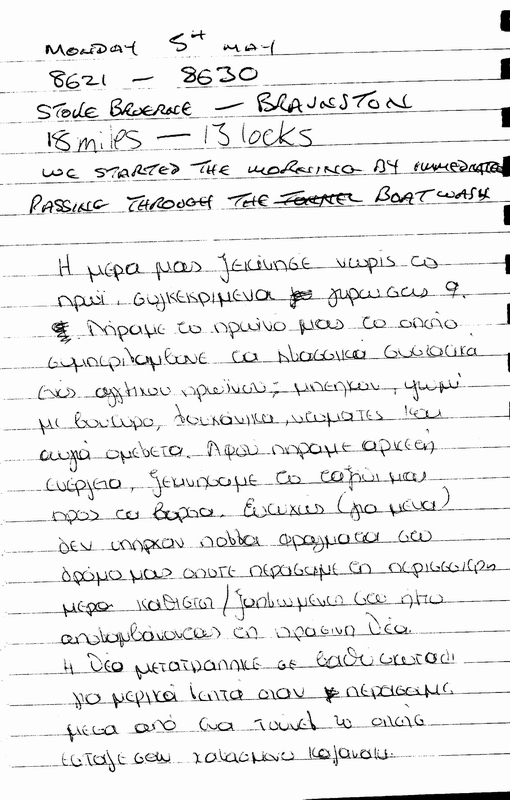 MONDAY 5th MAY
8621 — 8630
STOKE BRUERNE — BRAUNSTON
18 miles — 13 locks
WE STARTED THE MORNING BY IMMEDIATELY
PASSING THROUGH THE TUNNEL BOAT WASH
Η μερα μας ξεκίνησε νωρίς το
πρωί, συγκεκριμενα γύρω στις 9.
Πήραμε το πρωινο μας το οποίο
συμπεριλαμβανε τα κλασσικά συστατικά
ενός αγγλικου πρωινου; μπεηκον, ψωμί
με βουτυρο, λουκάνικα, ντομάτες και
αυγά ομελετα. Αφού πήραμε αρκετή
ενέργεια, ξεκινησαμε το ταξίδι μας
προς το βορρα. Ευτυχώς (για μένα)
δεν υπηρχαν πολλα φραγματα στο
δρόμο μας οποτε περασαμε τη περισσοτερη
μερα καθιστοι/ξαπλωμενοι στο ήλιο
απολαμβάνοντας τη πρασινη θέα.
Η θέα μετατράπηκε σε βαθύ σκοταδι
για μερικά λεπτά οταν περασαμε
μεσα από ένα τούνελ το οποίο
εσταζε σαν χαλασμενο καζανακι.